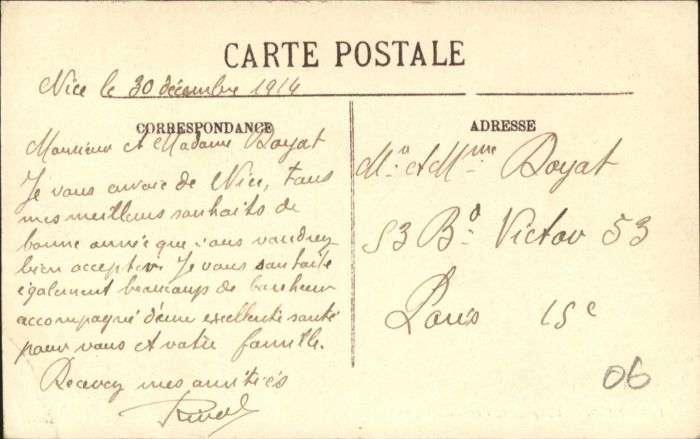 CARTE POSTALE
Nice le 30 décembre 1914
CORRESPONDANCE
Monsieur et Madame Doyat
Je vous envoie de Nice, tous
mes meilleurs souhaits de
bonne année que vous voudrez
bien accepter. Je vous souhaite
également beaucoup de bonheur
accompagné d'une excellente santé
pour vous et votre famille.
Recevez mes amitiés
ADRESSE
Mr et Mme Doyat
53 Bd Victor 53
Paris 15e
06